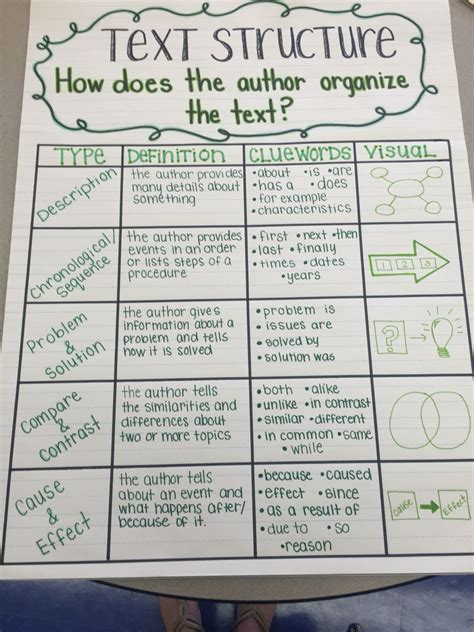 TEXT STRUCTURE
How does the author organize
the text?
TYPE DEFINITION CLUEWORDS VISUAL
Description
the author provides
many details about
something
• about • is • are
• has a • does
• for example
• characteristics
Chronological/
Sequence
the author provides
events in an order
or lists steps of a
procedure
• first • next • then
• last • finally
• times • dates
• years
1 2 3
Problem
&
Solution
the author gives
information about a
problem and tells
how it is solved
• problem is
• issues are
• solved by
• solution was
?
Compare
&
Contrast
the author tells
the similarities and
differences about
two or more topics
• both • alike
• unlike • in contrast
• similar • different
• in common • same
• while
Cause
&
Effect
the author tells
about an event and
what happens after/
because of it.
• because • caused
• effect • since
• as a result of
• due to • so
• reason
Cause Effect